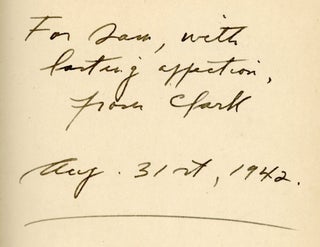 For Sam, with
lasting affection,
from Clark
Aug. 31st, 1942.